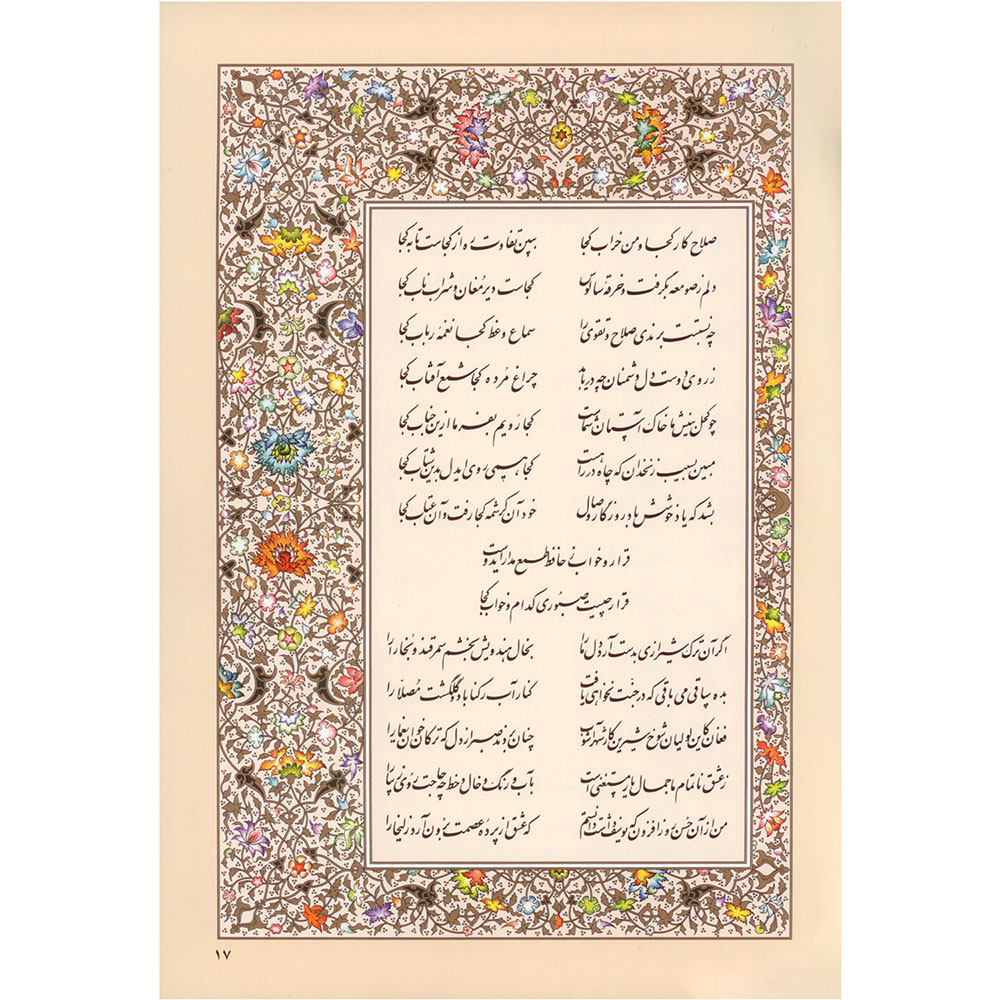 صلاح کار کجا و من خراب کجا ببین تفاوت ره از کجاست تا به کجا
دلم ز صومعه بگرفت و خرقه سالوس کجاست دیر مغان و شراب ناب کجا
چه نسبتست برندی صلاح و تقوی را سماع وعظ کجا نغمه رباب کجا
ز روی دوست دل دشمنان چه دریابد چراغ مُرده کجا شمع آفتاب کجا
چو کحل بینش ما خاک آستان شماست کجا رویم بفرما ازین جناب کجا
مبین بسیب زنخدان که چاه در راهست کجا همی روی ایدل بدین شتاب کجا
بشد که یاد خوشش باد روزگار وصال خود آن کرشمه کجا رفت و آن عتاب کجا
قرار و خواب ز حافظ طمع مدار ایدوست
قرار چیست صبوری کدام و خواب کجا
اگر آن ترک شیرازی بدست آرد دل ما را بخال هندویش بخشم سمرقند و بخارا را
بده ساقی می باقی که در جنت نخواهی یافت کنار آب رکناباد و گلگشت مُصلّا را
فغان کاین لولیان شوخ شیرین کار شهرآشوب چنان بردند صبر از دل که ترکان خوان یغما را
ز عشق ناتمام ما جمال یار مستغنی است بآب و رنگ و خال و خط چه حاجت روی زیبا را
من از آن حُسن روزافزون که یوسف داشت دانستم که عشق از پرده عصمت برون آرد زلیخا را
۱۷